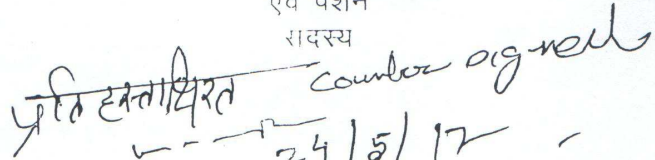 एवं पेंशन
सदस्य
प्रति हस्ताक्षरित Counter signed
24/5/12